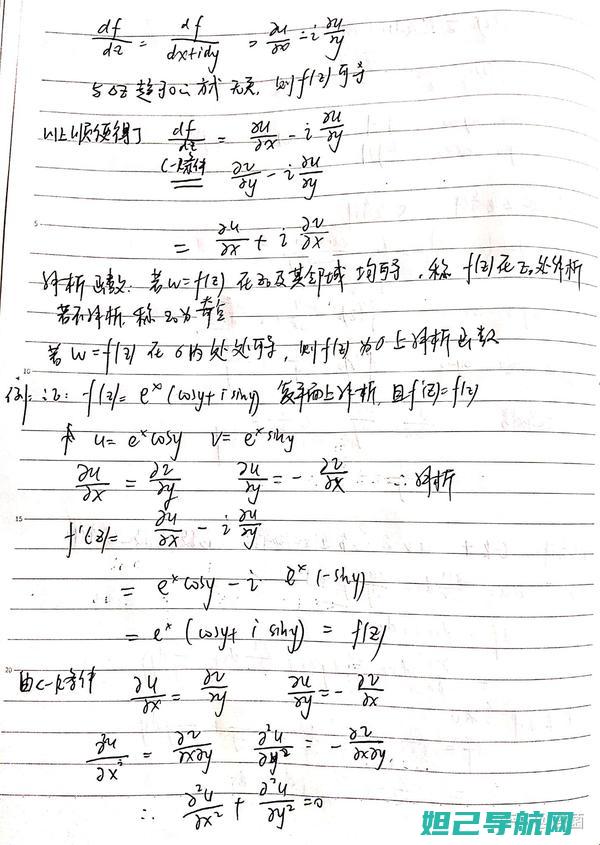 df/dz = df/(dx+idy) = ∂u/∂x - i ∂u/∂y
与Δz趋于0的方式无关, 则f(z)可导
以上顺便得了 df/dz = ∂u/∂x - i ∂u/∂y
C-R条件 ∂v/∂y - i ∂u/∂y
5
= ∂u/∂x + i ∂v/∂x
解析函数: 若w=f(z) 在z₀及其邻域 均可导, 称 f(z)在z₀处解析
若不解析, 称z₀为奇点
若 w=f(z) 在σ内处处可导, 则f(z)为σ上解析函数
10
例: 证: f(z)= eˣ(cosy+isiny) 复平面上解析, 且f'(z)=f(z)
u= eˣcosy v= eˣsiny
∂u/∂x = ∂v/∂y ∂u/∂y = - ∂v/∂x ∴解析
15
f'(z)= ∂u/∂x - i ∂u/∂y
= eˣcosy - i eˣ(-siny)
= eˣ(cosy+ i siny) = f(z)
20
由C-R条件 ∂u/∂x = ∂v/∂y ∂u/∂y = - ∂v/∂x
∂²u/∂x² = ∂v/∂x∂y ∂²u/∂y² = - ∂v/∂x∂y.
∴ ∂²u/∂x² + ∂²u/∂y² =0
妲己导航网